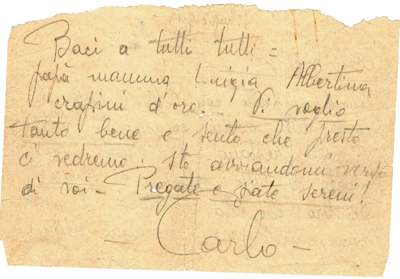 Baci a tutti tutti =
papà mamma Luigia Albertina
d'oro. Vi voglio
tanto bene e sento che presto
ci vedremo. Sto avviandomi verso
di voi - Pregate e state sereni!
- Carlo -